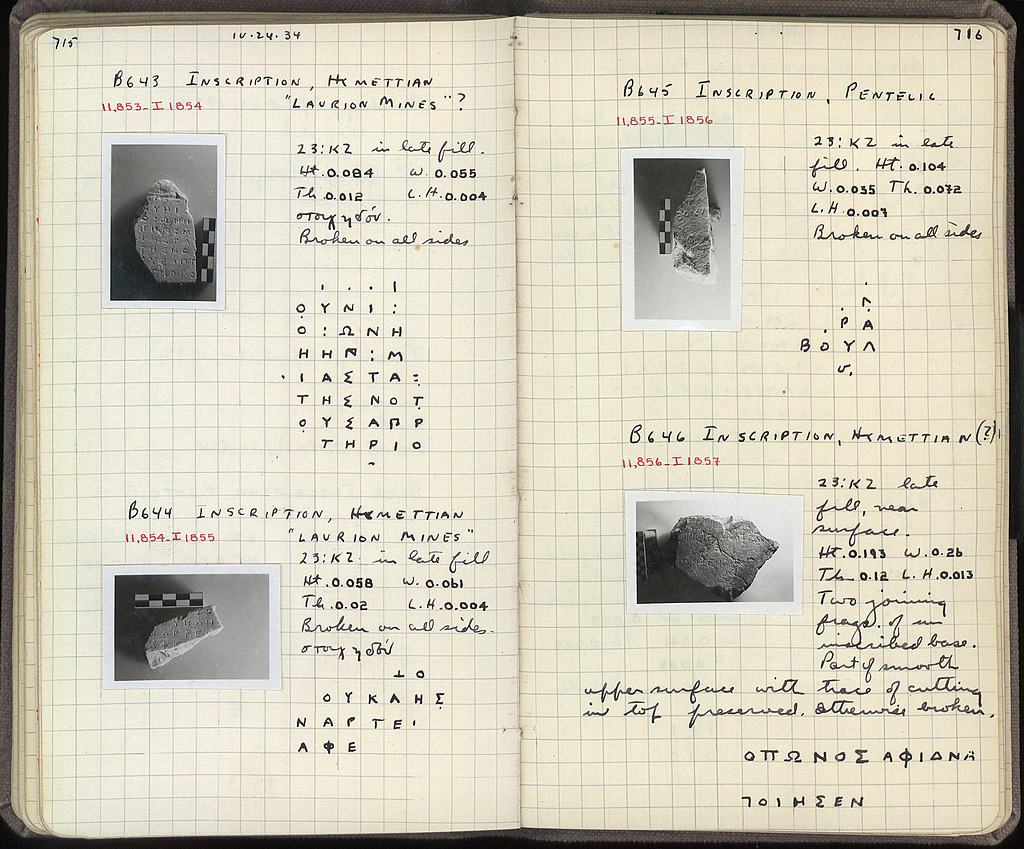 715
IV·24·34
B643 INSCRIPTION, HYMETTIAN
11,853-I 1854
"LAURION MINES"?
23:KZ in late fill.
Ht. 0.084 W. 0.055
Th. 0.012 L.H. 0.004
στοιχηδόν.
Broken on all sides
. . . Ι
Ο Υ Ν Ι :
Ο : Ω Ν Η
Η Η : Μ
· Ι Α Σ Τ Α :
Τ Η Σ Ν Ο Τ
Ο Υ Σ Α Π Ρ
Τ Η Ρ Ι Ο
B644 INSCRIPTION, HYMETTIAN
11,854-I 1855
"LAURION MINES"
23:KZ in late fill
Ht. 0.058 W. 0.061
Th. 0.02 L.H. 0.004
Broken on all sides.
στοιχηδόν
⊥ Ο
Ο Υ Κ Λ Η Σ
Ν Α Ρ Τ Ε Ι
Α Φ Ε
716
B645 INSCRIPTION, PENTELIC
11,855-I 1856
23:KZ in late
fill. Ht. 0.104
W. 0.035 Th. 0.072
L.H. 0.007
Broken on all sides
. Λ
. Ρ Α
Β Ο Υ Λ
υ.
B646 INSCRIPTION, HYMETTIAN (?)
11,856-I 1857
23:KZ late
fill, near
surface.
Ht. 0.193 W. 0.26
Th. 0.12 L.H. 0.013
Two joining
frags. of an
inscribed base.
Part of smooth
upper surface with trace of cutting
in top preserved. Otherwise broken.
ΟΠΩΝΟΣ ΑΦΙΔΝΑ
ΠΟΙΗΣΕΝ